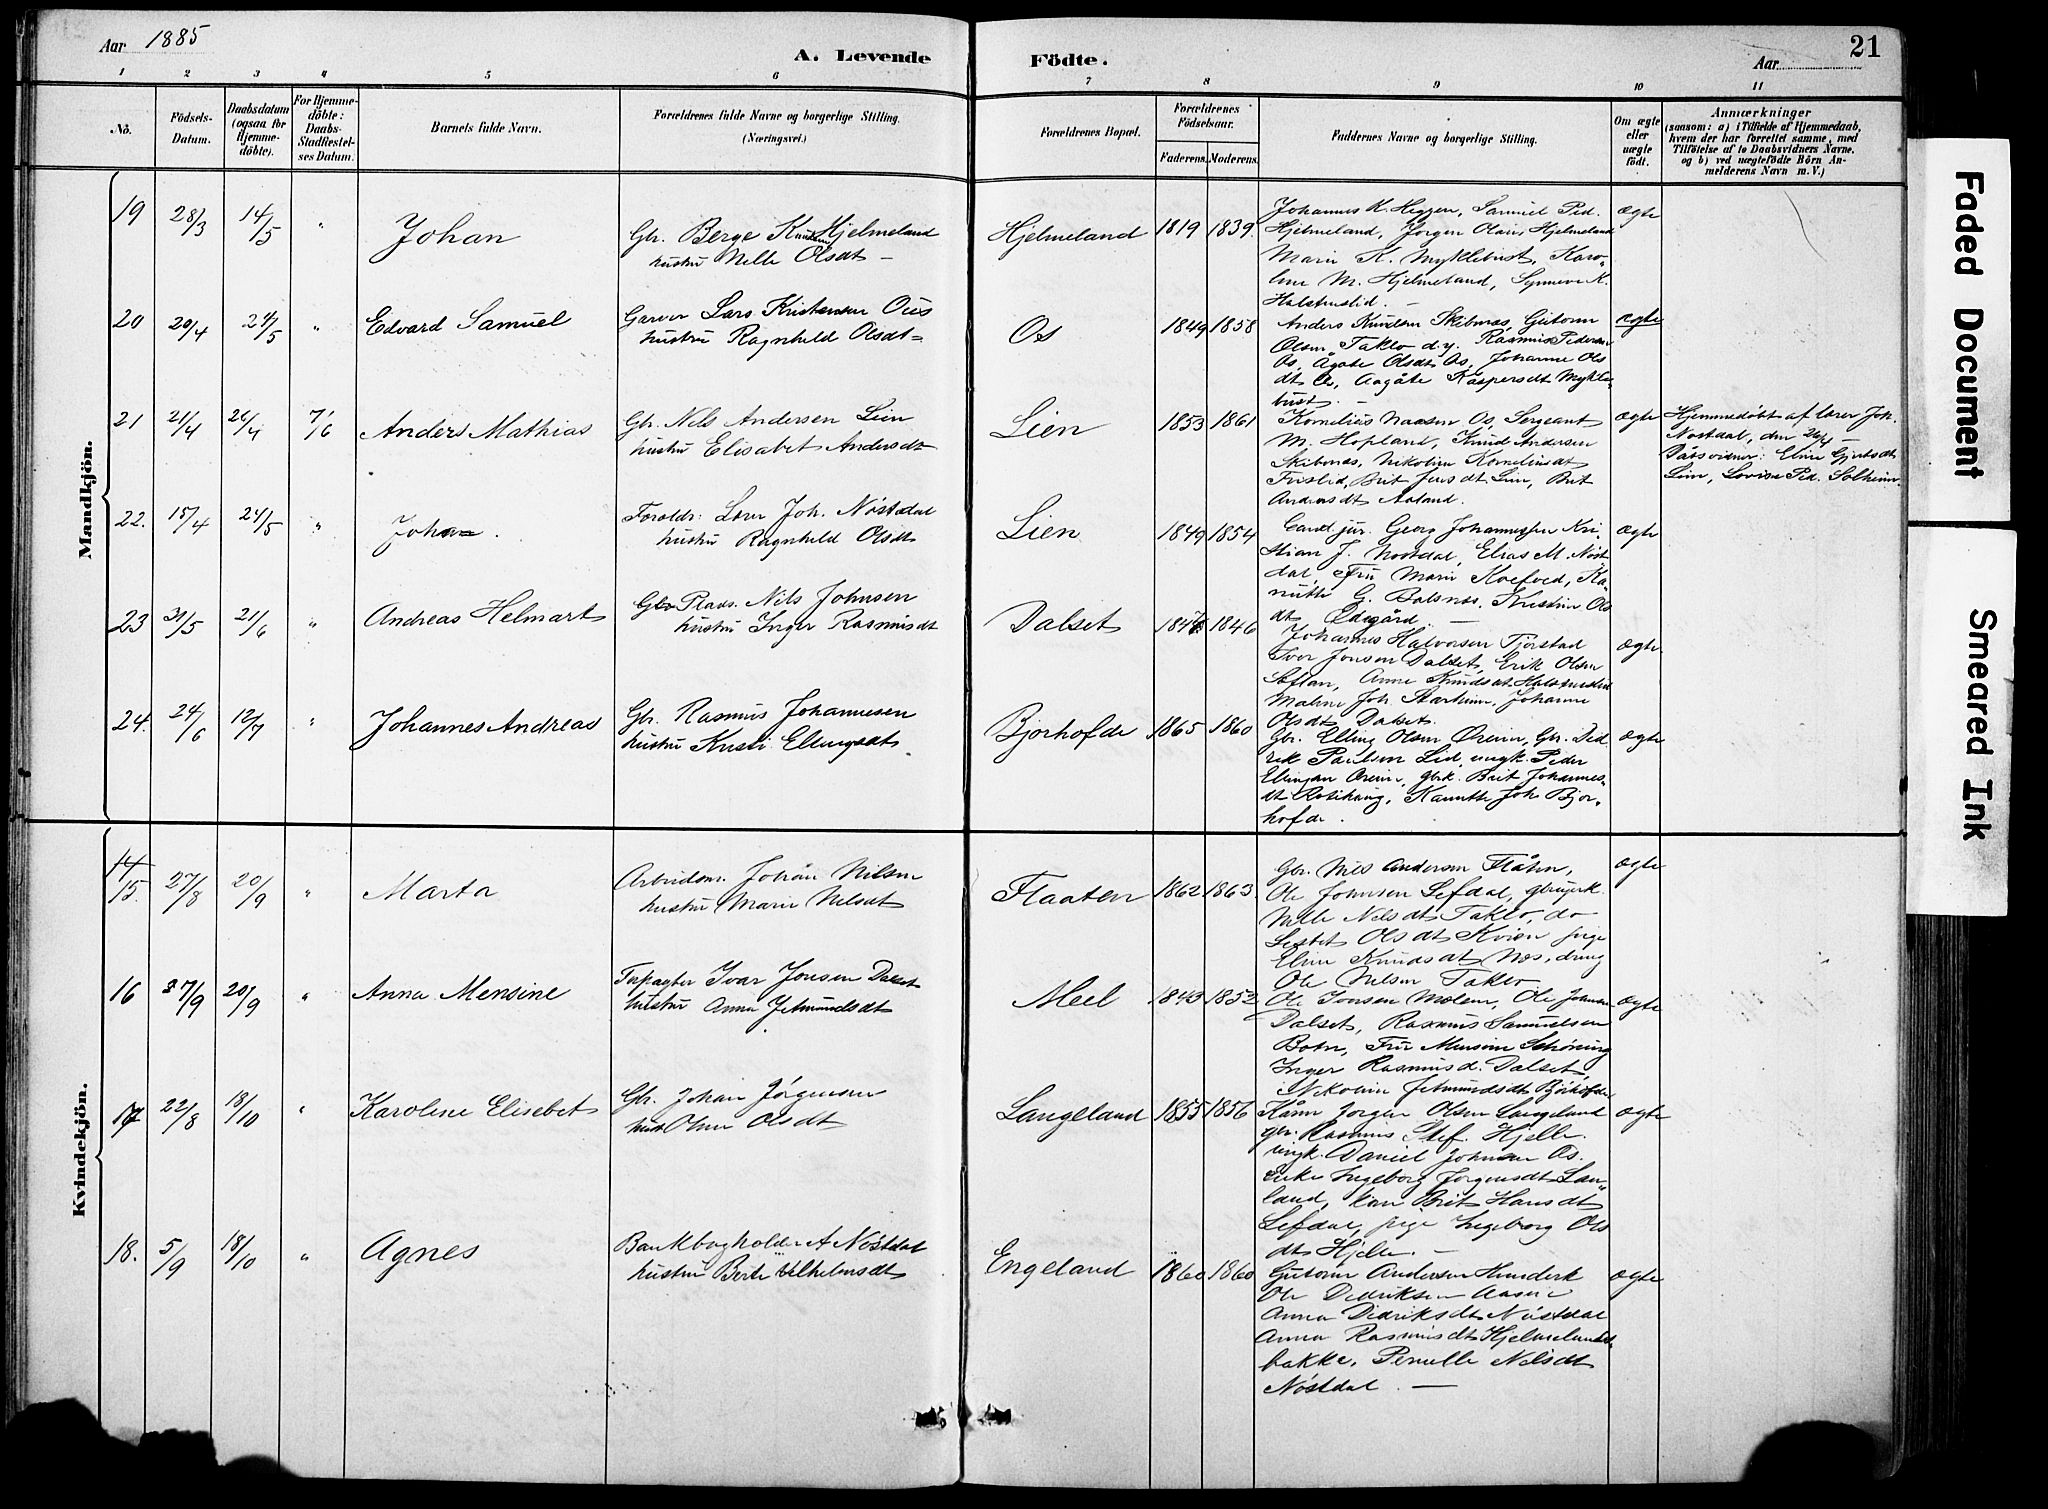 Aar 1885
A. Levende
Födte.
Aar
21
1 2 3 4 5 6 7 8 9 10 11
No.
Födsels-
Datum.
Daabsdatum
(ogsaa for
Hjemme-
döbte).
For Hjemme-
döbte:
Daabs-
Stadfestel-
ses Datum.
Barnets fulde Navn.
Forældrenes fulde Navne og borgerlige Stilling.
(Næringsvei.)
Forældrenes Bopæl.
Forældrenes
Födselsaar.
Faderens. Moderens.
Faddernes Navne og borgerlige Stilling.
Om ægte
eller
uægte
födt.
Anmærkninger
(saasom: a) i Tilfælde af Hjemmedaab,
hvem der har forrettet samme, med
Tilföielse af to Daabsvidners Navne,
og b) ved uægtefödte Börn An-
melderens Navn m. V.)
Mandkjön.
19 28/3 14/5 " Johan
Gbr. Berge Knudsen Hjelmeland
hustru Nille Olsdt -
Hjelmeland 1819 1839
Johannes K. Heggen, Samuel Ped.
Hjelmeland, Jørgen Olaus Hjelmeland
Marie K. Myklebust, Karo-
line M. Hjelmeland, Synneve K.
Halstenslid. -
ægte
20 20/4 24/5 " Edvard Samuel
Garver Lars Kristensen Ous
hustru Ragnhild Olsdt
Os 1849 1858
Anders Knudsen Skibenæs, Guttorm
Olsen Taklo d.y. Rasmus Pedersen
Os, Agate Olsdt Os, Johanne Ols
dt Os, Aagåte Kaspersdt Mykle-
bust. -
ægte
21 21/4 26/4 7/6 Anders Mathias
Gbr. Nils Andersen Lien
hustru Elisabet Andersdt
Lien 1853 1861
Kornelius Naasen Os, Sergeant
M. Hopland, Knud Andersen
Skibenæs, Nikoline Korneliusdt
Frislid, Brit Jensdt Lien, Brit
Andersdt Aaland.
ægte
Hjemmedøbt af lærer Joh.
Nøstdal, den 26/4 -
Dåbsvidner: Eline Gjertsdt
Lien, Lovise Ped. Solheim.
22. 15/4 24/5 " Johan.
Foreldr: Lærer Joh. Nøstdal
hustru Ragnhild Olsdt
Lien 1849 1854
Cand. jur. Georg Johannessen Kri-
stian J. Nøstdal, Elias M. Nøst
dal, Fru Marie Koefoed, Ka-
nutte G. Balsnes. Kristine Ols
dt Ødegård. -
ægte
23 31/5 21/6 " Andreas Helmart
Plads. Nils Johnsen
hustru Inger Rasmusdt
Dalset 1847 1846
Johannes Halvorsen Tjørstad
Ivar Jonsen Dalset, Erik Olsen
Seftan, Anne Knudsdt Halstenslid
Malene Joh. Starheim, Johanne
Olsdt Dalset.
ægte.
24. 24/6 12/7 " Johannes Andreas
Gbr. Rasmus Johannesen
hustru Kristi Ellingsdt.
Bjørhofde 1865 1860
Gbr. Elling Olsen Øreim, Gbr. Did
rek Paulsen Lid, ungk. Peder
Ellingsen Øreim, gbrk. Brit Johannes-
dt Rosihaug, Kanutte Joh. Bjør-
hofde.
ægte
Kvindekjön.
14/15. 27/8 20/9 " Marta
Arbeidsm. Johan Nilsen
hustru Marie Nelsdt
Flaaten 1862 1863.
Gbr. Nils Andersen Flåten,
Ole Johnsen Sefdal, gbrugerk.
Nille Nilsdt Taklo, do
Sestet Olsdt Kvien pige
Eline Knudsdt Næs, dreng
Ole Nilsen Taklo
ægte
16 27/9 20/9 " Anna Mensine
Forpagter Ivar Jonsen Dalset
hustru Anna Jetmundsdt
Meel 1843 1852
Ole Ivarsen Molem, Ole Johnsen
Dalset, Rasmus Samuelsen
Botn, Fru Mensine Schöning
Inger Rasmusd. Dalset,
Nikoline Jetmundsdt Bjørhofde
ægte
17 22/8 18/10 " Karoline Elisebet
Gbr. Johan Jørgensen
hust Oline Olsdt
Langeland 1855 1856
Kårm Jørgen Olsen Langeland
gbr. Rasmus Stef. Hjelle.
ungk. Daniel Johnsen Os.
enke Ingeborg Jørgensdt Lan-
land, kone Brit Hansdt
Sefdal, pige Ingeborg Ols
dt Hjelle. -
ægte
18. 5/9 18/10 " Agnes
Bankbogholder A Nöstdal
hustru Berte Vilhelmsdt
Engeland 1860 1860
Guttorm Andersen Hunderk
Ole Didriksen Aasene
Anna Didriksdt Nøstdal
Anna Rasmusdt Hjelmelands-
bakke, Pernille Nilsdt
Nöstdal. -
ægte
Faded Document
Smeared Ink